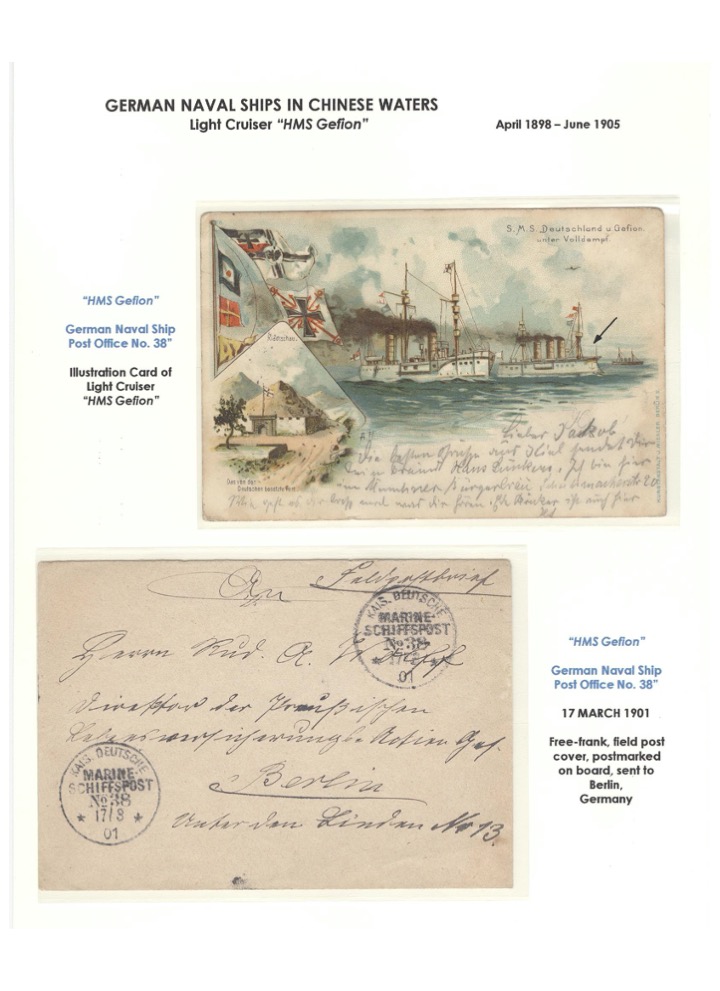 GERMAN NAVAL SHIPS IN CHINESE WATERS
Light Cruiser "HMS Gefion"
April 1898 – June 1905
S.M.S. Deutschland u. Gefion.
unter Volldampf.
"HMS Gefion"
German Naval Ship
Post Office No. 38"
Illustration Card of
Light Cruiser
"HMS Gefion"
Kiautschau.
Das von den
Deutschen besetzte Fort.
Lieber
Die besten Grüße aus Kiel sendet Dir
Hans
Ich bin hier
Münchner Bürgerbräu
20
An
Feldpostbrief
KAIS. DEUTSCHE
MARINE-
SCHIFFSPOST
No 38
17/3
01
Herrn Rud. A.
Direktor der Preußischen
Lebensversicherungs Actien Ges.
Berlin
Unter den Linden No 13.
KAIS. DEUTSCHE
MARINE-
SCHIFFSPOST
No 38
* 17/3 *
01
"HMS Gefion"
German Naval Ship
Post Office No. 38"
17 MARCH 1901
Free-frank, field post
cover, postmarked
on board, sent to
Berlin,
Germany